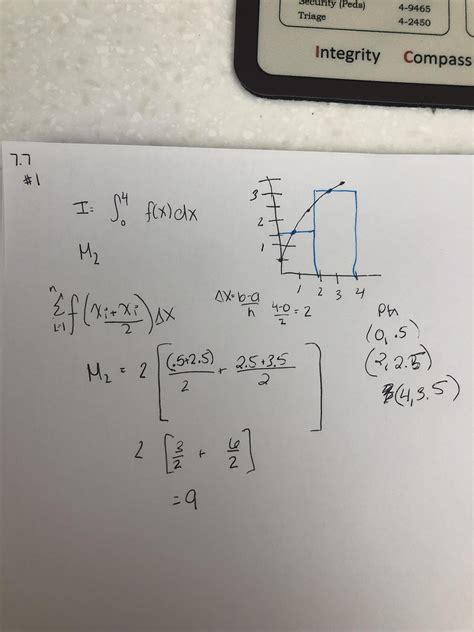 Security (Peds) 4-9465
Triage 4-2450
Integrity Compass
7.7
#1
I= ∫₀⁴ f(x)dx
M₂
3
2
1
1 2 3 4
n
Σ f(xᵢ+xᵢ/2)Δx
i=1
Δx=b-a/n 4-0/2=2
(0, .5)
(2, 2.5)
(4, 3.5)
M₂ = 2[(.5+2.5)/2 + 2.5+3.5/2]
2[3/2 + 6/2]
=9